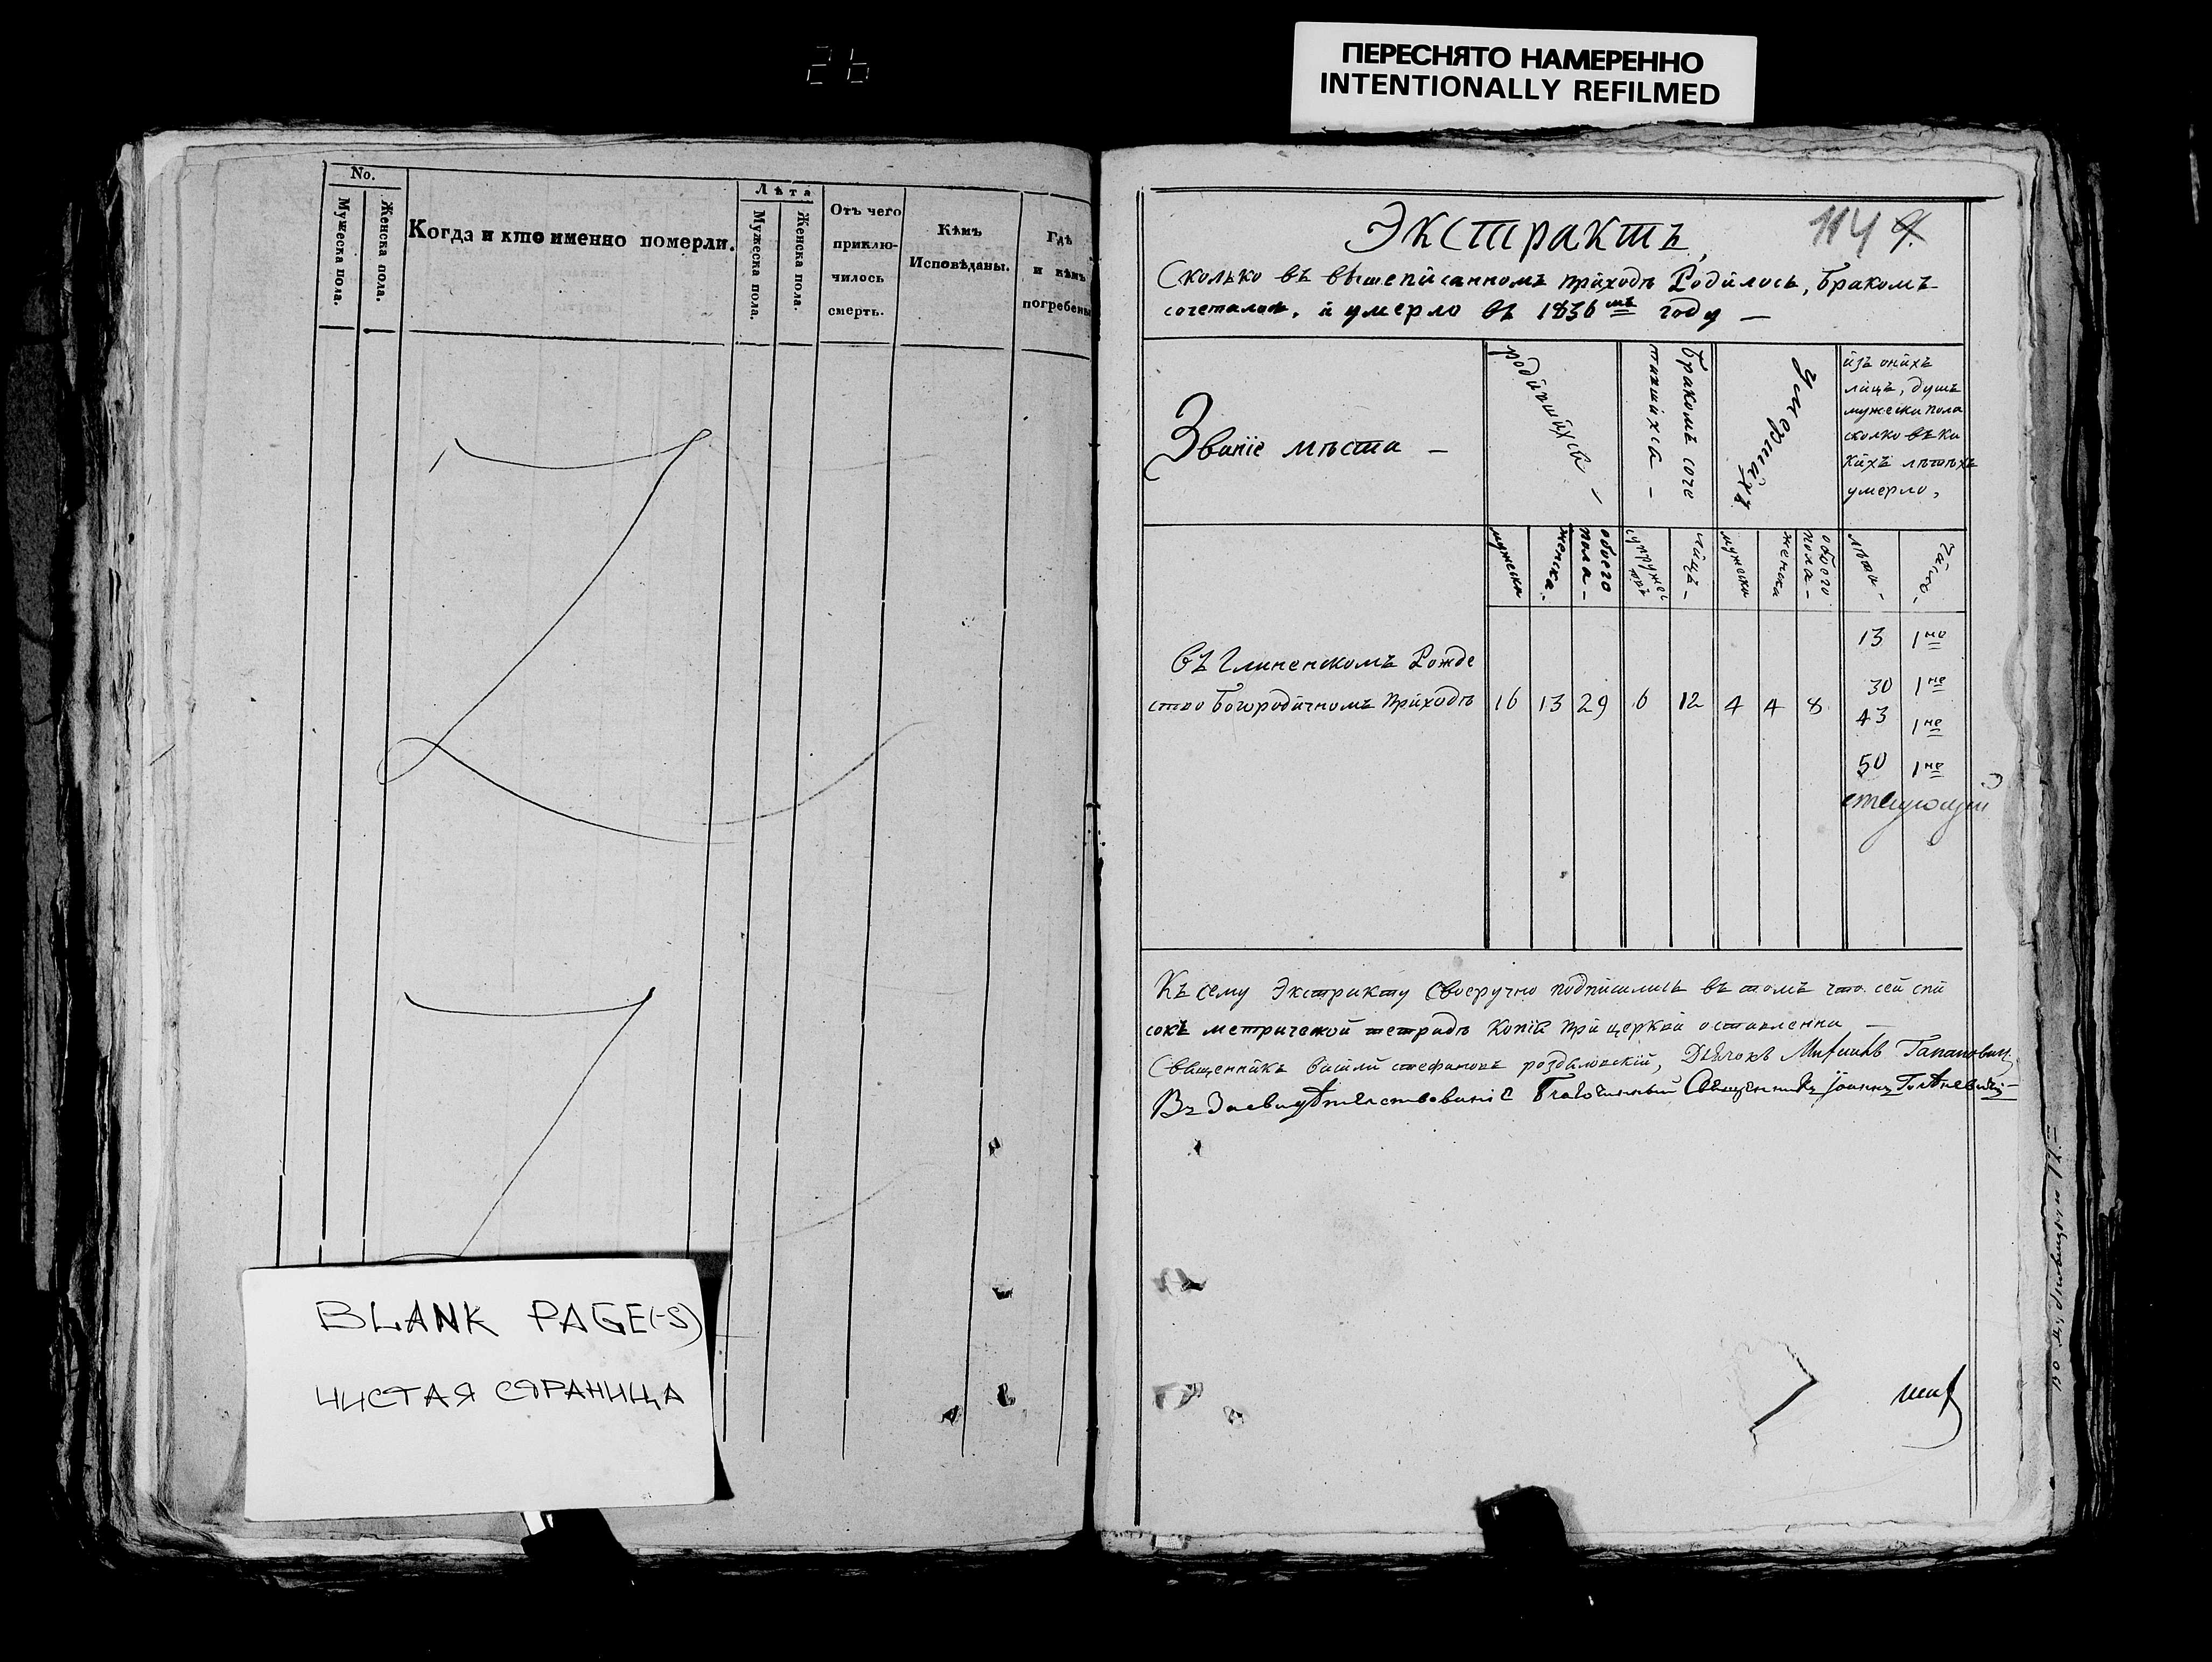 26
ПЕРЕСНЯТО НАМЕРЕННО
INTENTIONALLY REFILMED
No.
Мужеска пола.
Женска пола.
Когда и кто именно померли.
Лѣта
Мужеска пола.
Женска пола.
Отъ чего
приклю-
чилось
смерть.
Кѣмъ
Исповѣданы.
Гдѣ
и кѣмъ
погребены
BLANK PAGE(-S)
ЧИСТАЯ СТРАНИЦА
Экстрактъ,
114
Сколько въ вышеписанномъ приходѣ Родилось, бракомъ
сочеталось, и умерло въ 1836мъ году —
Званіе мѣста —
родившихся —
бракомъ соче
тавшихся —
умершихъ
изъ онихъ
лицъ, душъ
мужеска пола
сколко въ ка
кихъ лѣтахъ
умерло,
мужеска
женска -
обоего
пола -
супружес
лицъ -
мужеска
женска
обоего
пола -
лѣта -
число -
въ Глиненскомъ Рожде
ство Богородичномъ приходѣ 16 13 29 6 12 4 4 8
13 1но
30 1но
43 1но
50 1но
Къ сему Экстракту своеручно подписались въ томъ что сей спи
сокъ метрической тетрадѣ копія при церкви оставленна —
Священникъ Василій Стефановъ роздыловскій, Дьячокъ
Въ Засвидѣтелствованіе Благочинный Священникъ Іоаннъ